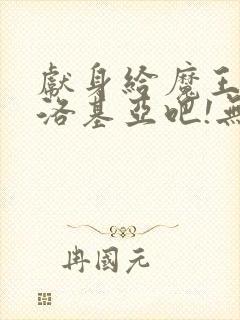 獻身給魔王
洛基亞吧!無
冉國元